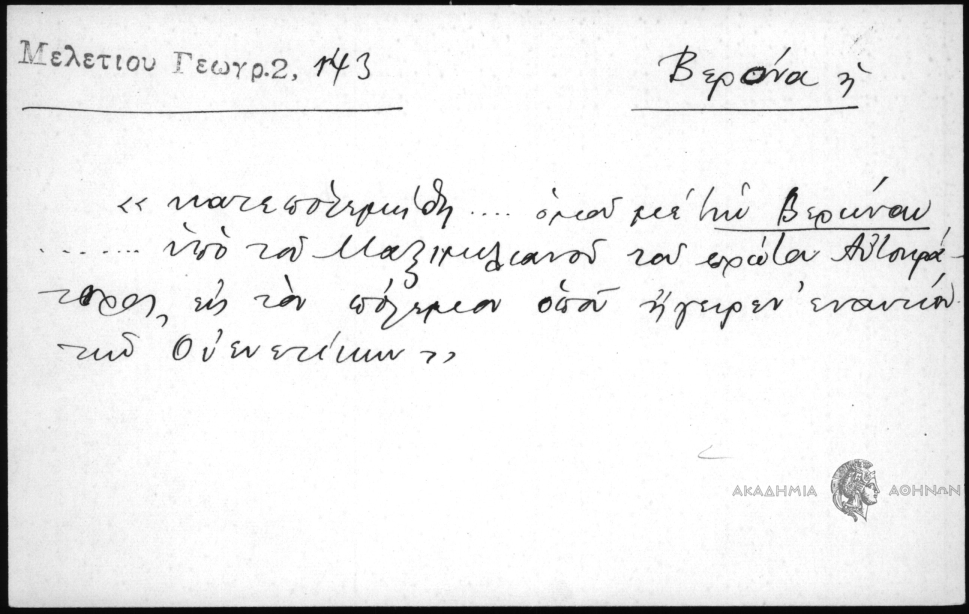 Μελετίου Γεωγρ.2, 143
Βερόνα ἡ
« κατεπολεμήθη .... ὁμοῦ μὲ τὴν Βερώναν
....... ὑπὸ τοῦ Μαξιμιλιανοῦ τοῦ πρώτου Αὐτοκρά-
τορος, εἰς τὸν πόλεμον ὁποῦ ἤγειρεν ἐναντίον
τῶν Οὐενετίκων »
ΑΚΑΔΗΜΙΑ ΑΘΗΝΩΝ